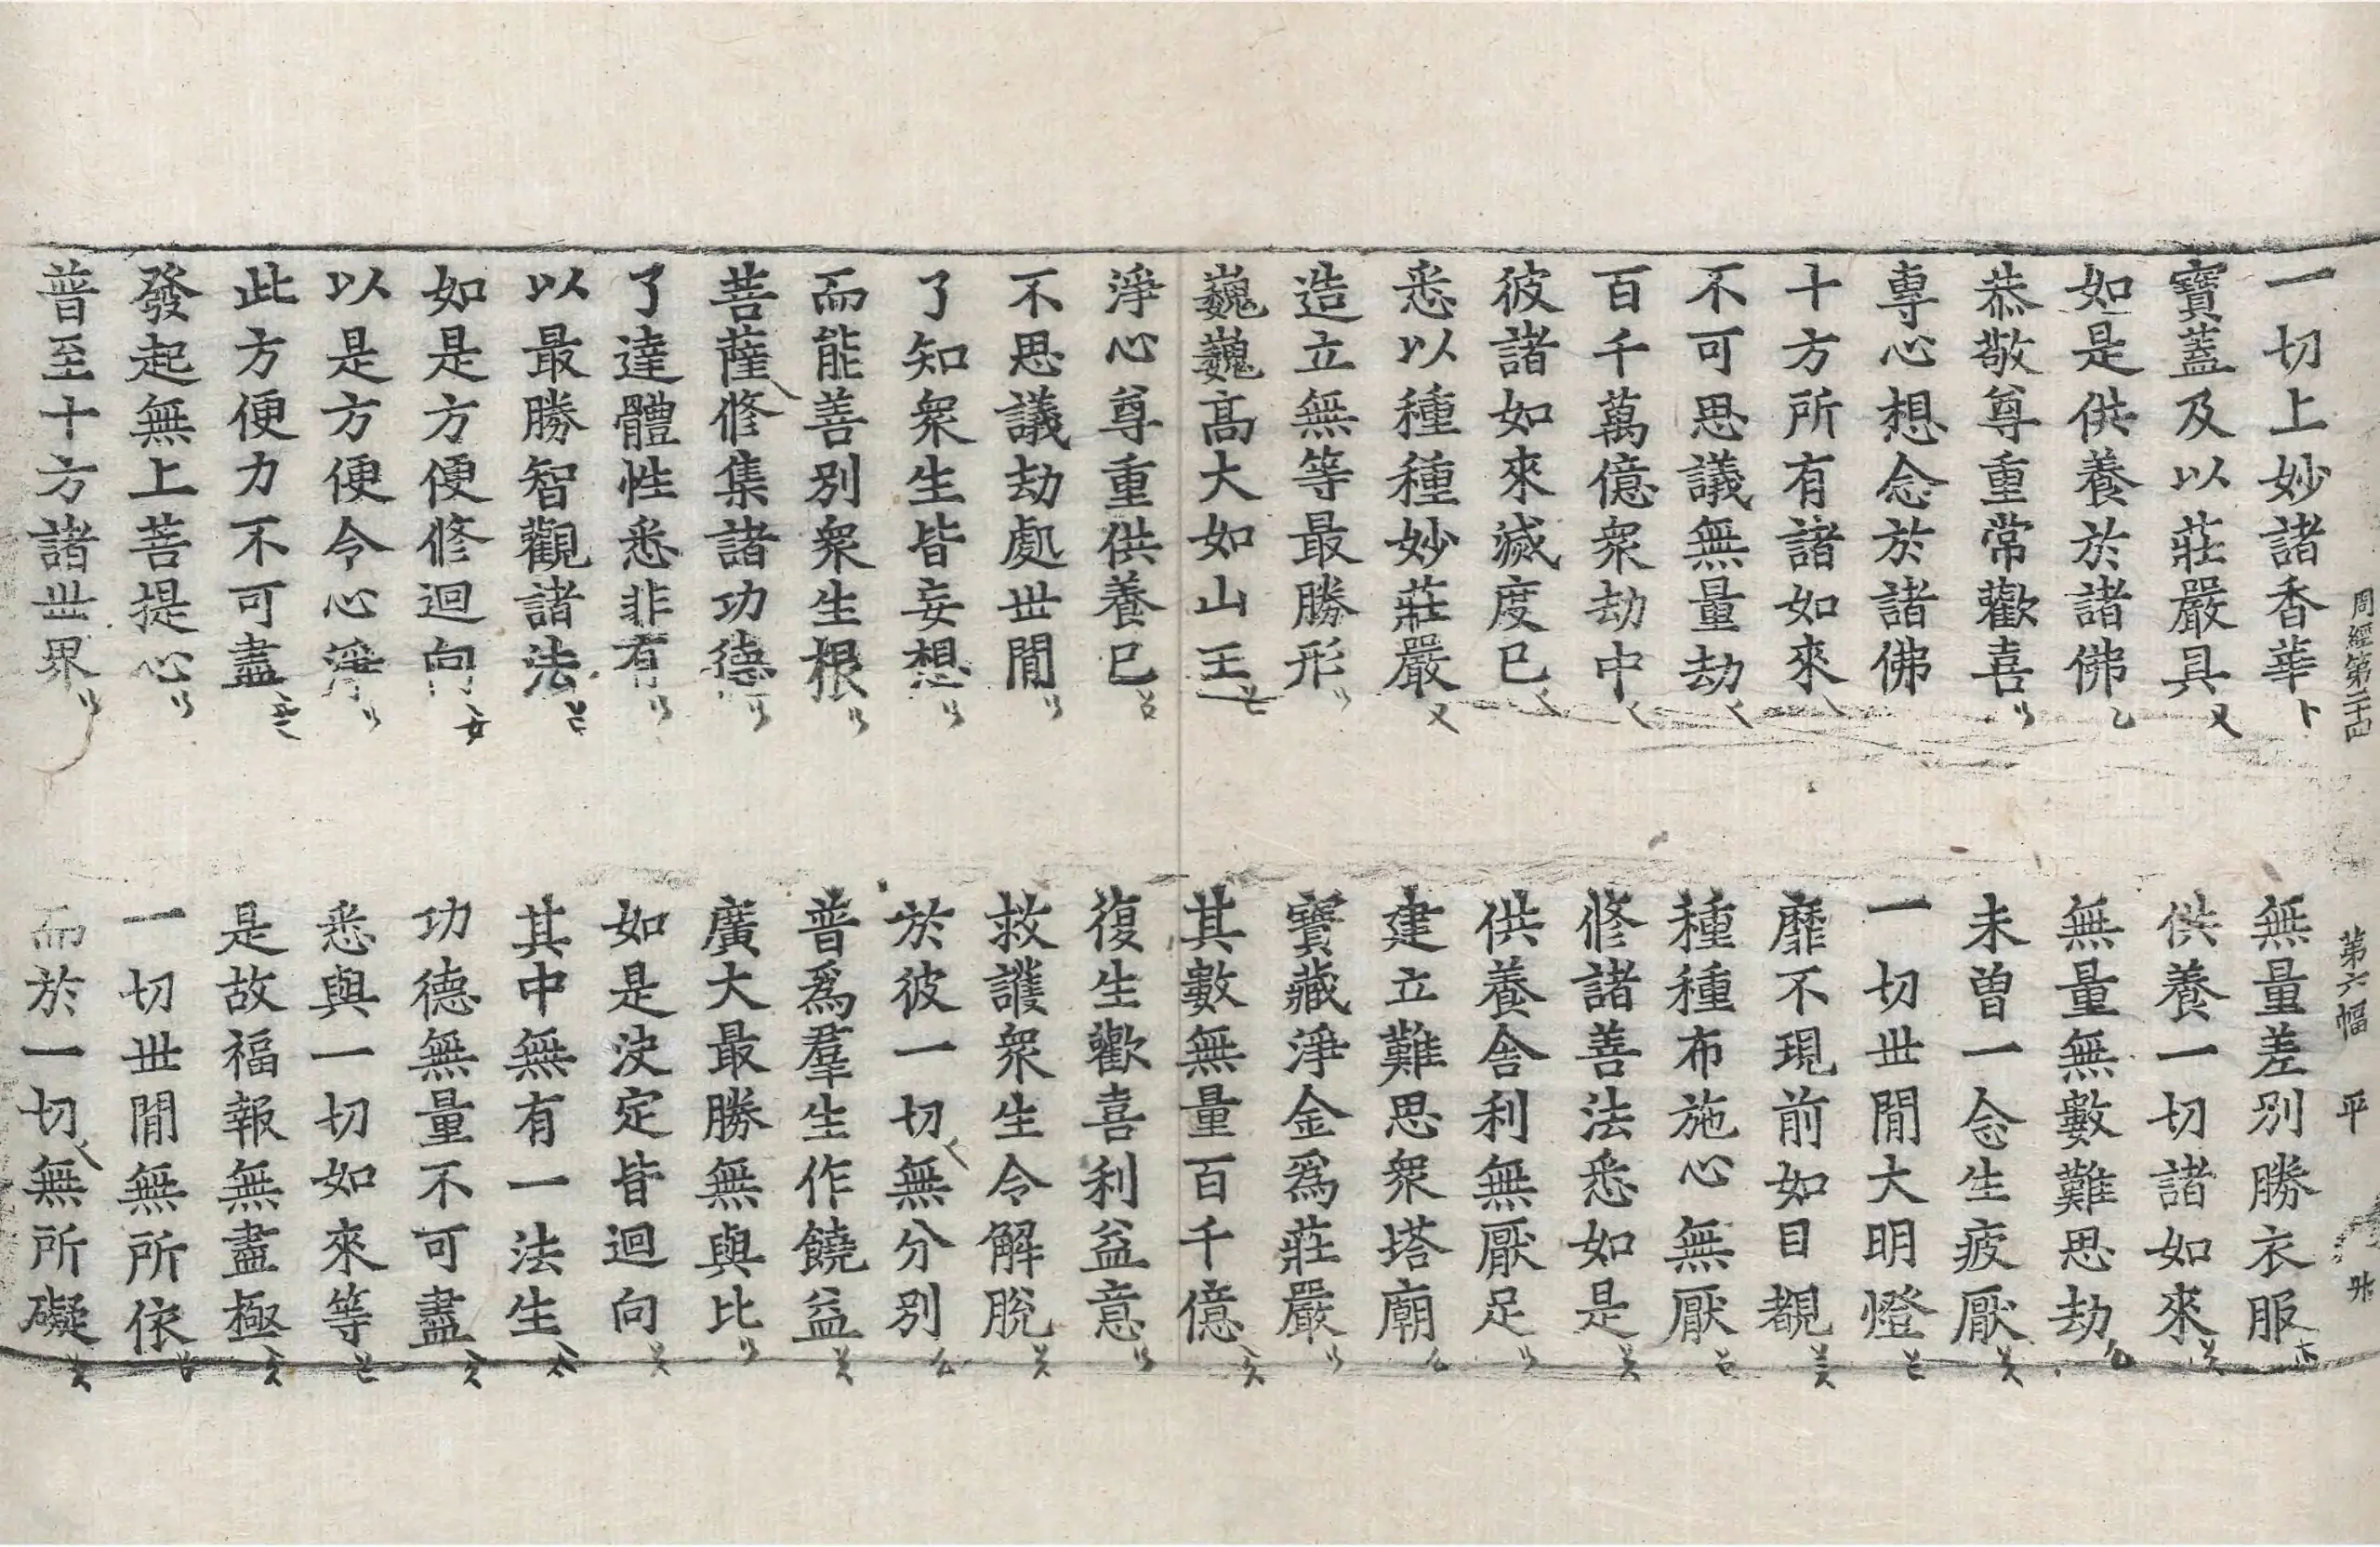 周經第二十四　第六幅　平
一切上妙諸香華　無量差別勝衣服
寶蓋及以莊嚴具　供養一切諸如來
如是供養於諸佛　無量無數難思劫
恭敬尊重常歡喜　未曾一念生疲厭
專心想念於諸佛　一切世間大明燈
十方所有諸如來　靡不現前如目覩
不可思議無量劫　種種布施心無厭
百千萬億衆劫中　修諸善法悉如是
彼諸如來滅度已　供養舍利無厭足
悉以種種妙莊嚴　建立難思衆塔廟
造立無等最勝形　寶藏淨金爲莊嚴
巍巍高大如山王　其數無量百千億
淨心尊重供養已　復生歡喜利益意
不思議劫處世間　救護衆生令解脫
了知衆生皆妄想　於彼一切無分別
而能善別衆生根　普爲羣生作饒益
菩薩修集諸功德　廣大最勝無與比
了達體性悉非有　如是決定皆迴向
以最勝智觀諸法　其中無有一法生
如是方便修迴向　功德無量不可盡
以是方便令心淨　悉與一切如來等
此方便力不可盡　是故福報無盡極
發起無上菩提心　一切世間無所依
普至十方諸世界　而於一切無所礙